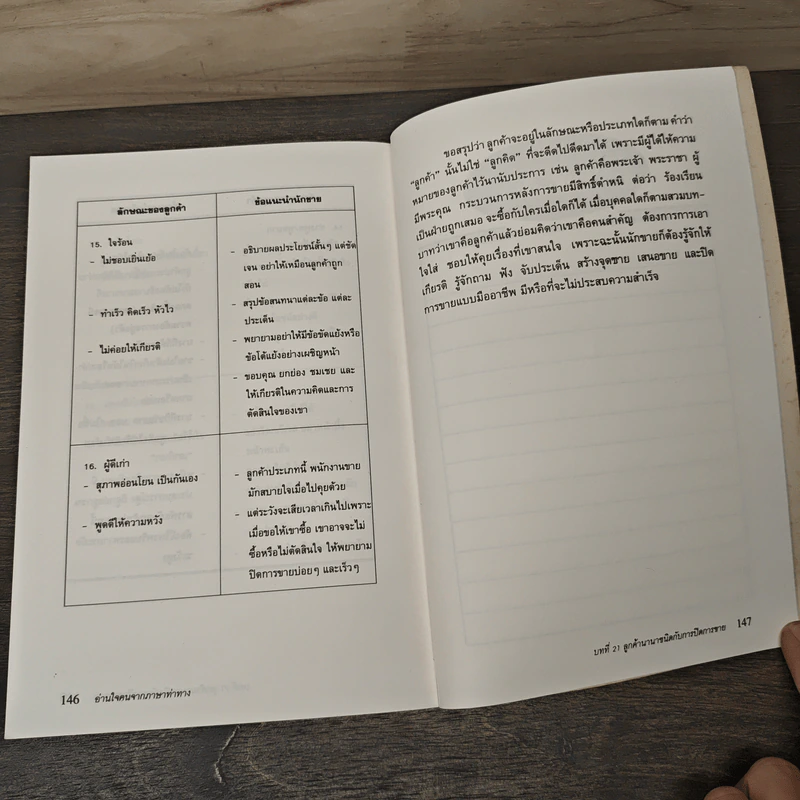 ลักษณะของลูกค้า
ข้อแนะนำนักขาย
15. ใจร้อน
- ไม่ชอบเยิ่นเย้อ
- ทำเร็ว คิดเร็ว หัวไว
- ไม่ค่อยให้เกียรติ
- อธิบายผลประโยชน์สั้นๆ แต่ชัด
เจน อย่าให้เหมือนลูกค้าถูก
สอน
- สรุปข้อสนทนาแต่ละข้อ แต่ละ
ประเด็น
- พยายามอย่าให้มีข้อขัดแย้งหรือ
ข้อโต้แย้งอย่างเผชิญหน้า
- ขอบคุณ ยกย่อง ชมเชย และ
ให้เกียรติในความคิดและการ
ตัดสินใจของเขา
16. ผู้ดีเก่า
- สุภาพอ่อนโยน เป็นกันเอง
- พูดดีให้ความหวัง
- ลูกค้าประเภทนี้ พนักงานขาย
มักสบายใจเมื่อไปคุยด้วย
- แต่ระวังจะเสียเวลาเกินไปเพราะ
เมื่อขอให้เขาซื้อ เขาอาจจะไม่
ซื้อหรือไม่ตัดสินใจ ให้พยายาม
ปิดการขายบ่อยๆ และเร็วๆ
146 อ่านใจคนจากภาษาท่าทาง
ขอสรุปว่า ลูกค้าจะอยู่ในลักษณะหรือประเภทใดก็ตาม คำว่า
"ลูกค้า" นั้นไม่ใช่ "ลูกคิด" ที่จะดีดไปดีดมาได้ เพราะมีผู้ได้ให้ความ
หมายของลูกค้าไว้นานับประการ เช่น ลูกค้าคือพระเจ้า พระราชา ผู้
มีพระคุณ กระบวนการหลังการขายมีสิทธิ์ตำหนิ ต่อว่า ร้องเรียน
เป็นฝ่ายถูกเสมอ จะซื้อกับใครเมื่อใดก็ได้ เมื่อบุคคลใดก็ตามสวมบท-
บาทว่าเขาคือลูกค้าแล้วย่อมคิดว่าเขาคือคนสำคัญ ต้องการการเอา
ใจใส่ ชอบให้คุยเรื่องที่เขาสนใจ เพราะฉะนั้นนักขายก็ต้องรู้จักให้
เกียรติ รู้จักถาม ฟัง จับประเด็น สร้างจุดขาย เสนอขาย และปิด
การขายแบบมืออาชีพ มีหรือที่จะไม่ประสบความสำเร็จ
บทที่ 21 ลูกค้านานาชนิดกับการปิดการขาย 147